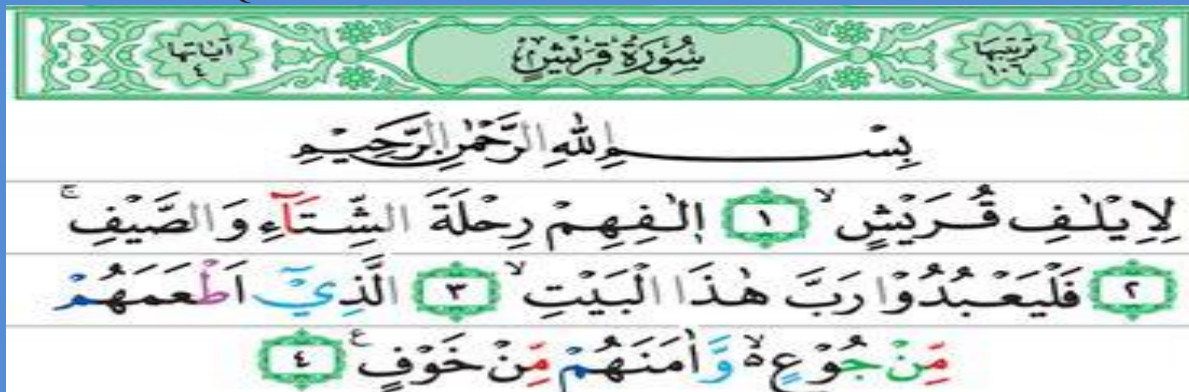 ترتيبها ١٠٦ سُوْرَةُ قُرَيْشٍ آياتها ٤
بِسْــــــمِ اللّٰهِ الرَّحْمٰنِ الرَّحِيْمِ
لِاِيْلٰفِ قُرَيْشٍۙ ١ اٖلٰفِهِمْ رِحْلَةَ الشِّتَاۤءِ وَالصَّيْفِۚ
٢ فَلْيَعْبُدُوْا رَبَّ هٰذَا الْبَيْتِۙ ٣ الَّذِيْٓ اَطْعَمَهُمْ
مِّنْ جُوْعٍ ەۙ وَّاٰمَنَهُمْ مِّنْ خَوْفٍ ࣖ ٤